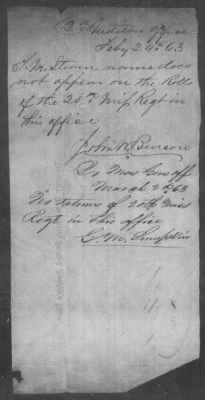 2nd Auditors Office
Feby 24th 63
T. M. Steven name does
not appear on the Rolls
of the 20th Miss Regt in
this office
John W.
Qr Mas Gen off
March 2d 63
No returns of 20th Miss
Regt. in this office
G. M.